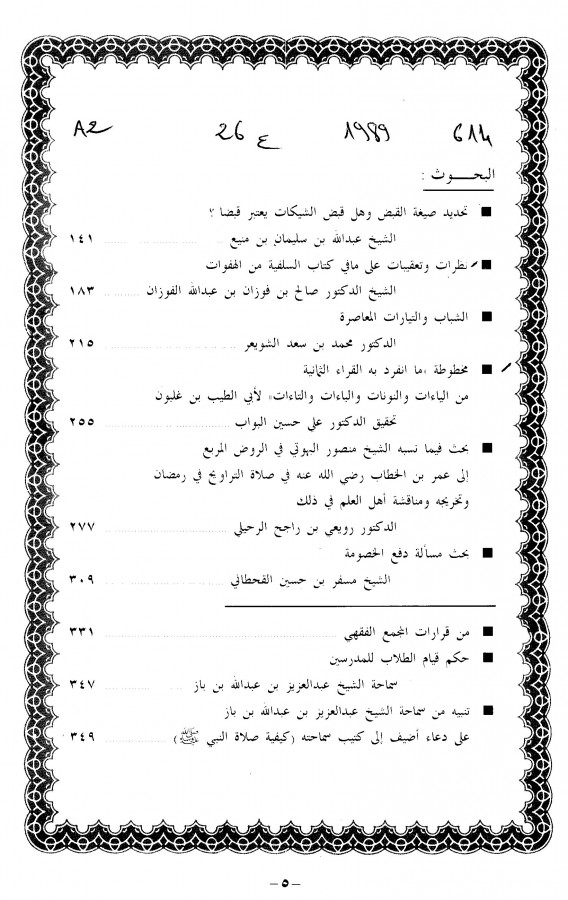 614 1989 ع 26 A2
البحـــوث :
■ تحديد صيغة القبض وهل قبض الشيكات يعتبر قبضا ؟
الشيخ عبدالله بن سليمان بن منيع ١٤١
■ نظرات وتعقيبات على مافي كتاب السلفية من الهفوات
الشيخ الدكتور صالح بن فوزان بن عبدالله الفوزان ١٨٣
■ الشباب والتيارات المعاصرة
الدكتور محمد بن سعد الشويعر ٢١٥
■ مخطوطة «ما انفرد به القراء الثمانية
من الياءات والنونات والباءات والتاءات» لأبي الطيب بن غلبون
تحقيق الدكتور علي حسين البواب ٢٥٥
■ بحث فيما نسبه الشيخ منصور البهوتي في الروض المربع
إلى عمر بن الخطاب رضي الله عنه في صلاة التراويح في رمضان
وتخريجه ومناقشة أهل العلم في ذلك
الدكتور رويعي بن راجح الرحيلي ٢٧٧
■ بحث مسألة دفع الخصومة
الشيخ مسفر بن حسين القحطاني ٣٠٩
■ من قرارات المجمع الفقهي ٣٣١
■ حكم قيام الطلاب للمدرسين
سماحة الشيخ عبدالعزيز بن عبدالله بن باز ٣٤٧
■ تنبيه من سماحة الشيخ عبدالعزيز بن عبدالله بن باز
على دعاء أضيف إلى كتيب سماحته (كيفية صلاة النبي ﷺ) ٣٤٩
– ٥ –